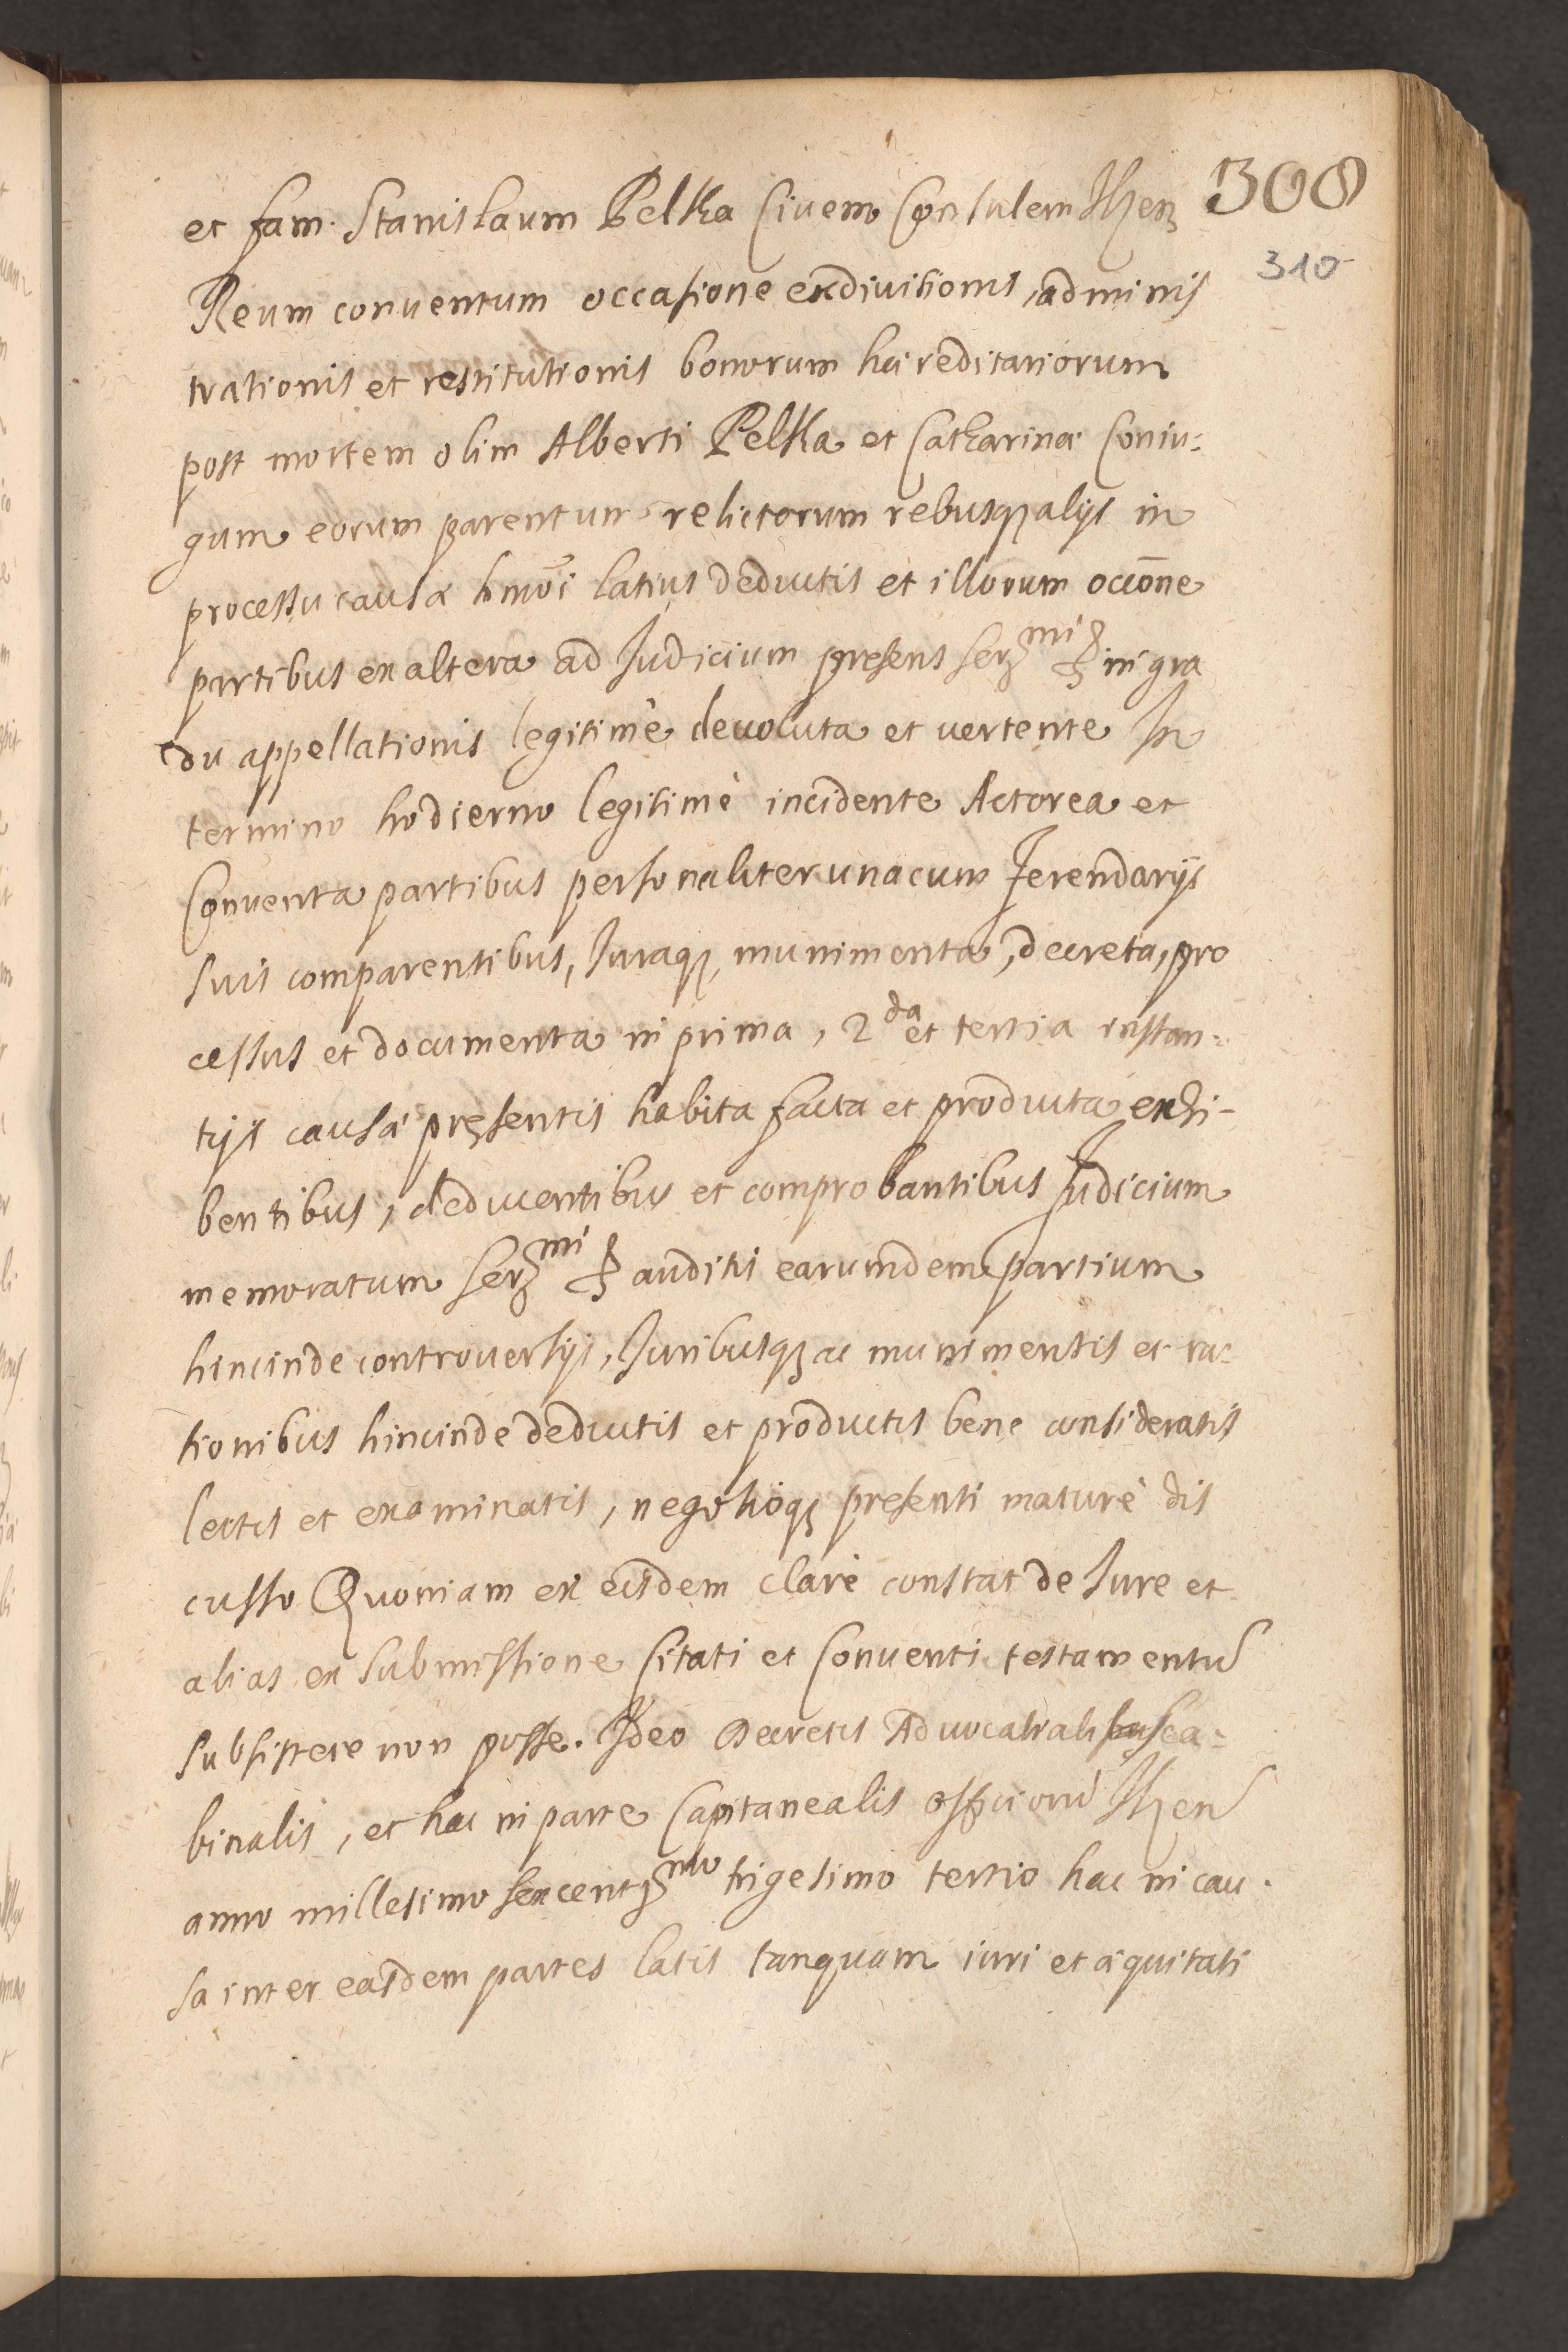 308
310
et fam. Stanislaum Pelka Civem Consulem
Reum conventum occasione exdivisionis, adminis
trationis et restitutionis bonorum haereditariorum
post mortem olim Alberti Pelka et Catharinae Coniu:
gum eorum parentum relictorum rebusq₃ alijs in
processu causae hmōi latius deductis et illorum occōne
partibus ex altera ad Judicium presens Ser₃mi in gra
du appellationis legitimè devoluta et vertente In
termino hodierno legitimè incidente Actorea et
Conventa partibus personaliter unacum Ferendarijs
suis comparentibus, Juraq₃ munimenta, decreta, pro
cessus et documenta in prima, 2da et tertia instan:
tijs causae pręsentis habita facta et producta exhi-
bentibus, deducentibus et comprobantibus Judicium
memoratum Ser₃mi auditis earumdem partium
hincinde controversijs, Juribusq₃ ac munimentis et ra:
tionibus hincinde deductis et productis bene consideratis
lectis et examinatis, negotioq₃ presenti maturè dis
cusso Quoniam ex eisdem clarè constat de Jure et
alias ex submissione Citati et Conventi testamentū
subsistere non posse. Ideo Decretis Advocatialis sca:
binalis, et hac in parte Capitanealis officiorū
anno millesimo sexcent₃mo trigesimo tertio hac in cau:
sa inter easdem partes latis tanquam iuri et aequitati